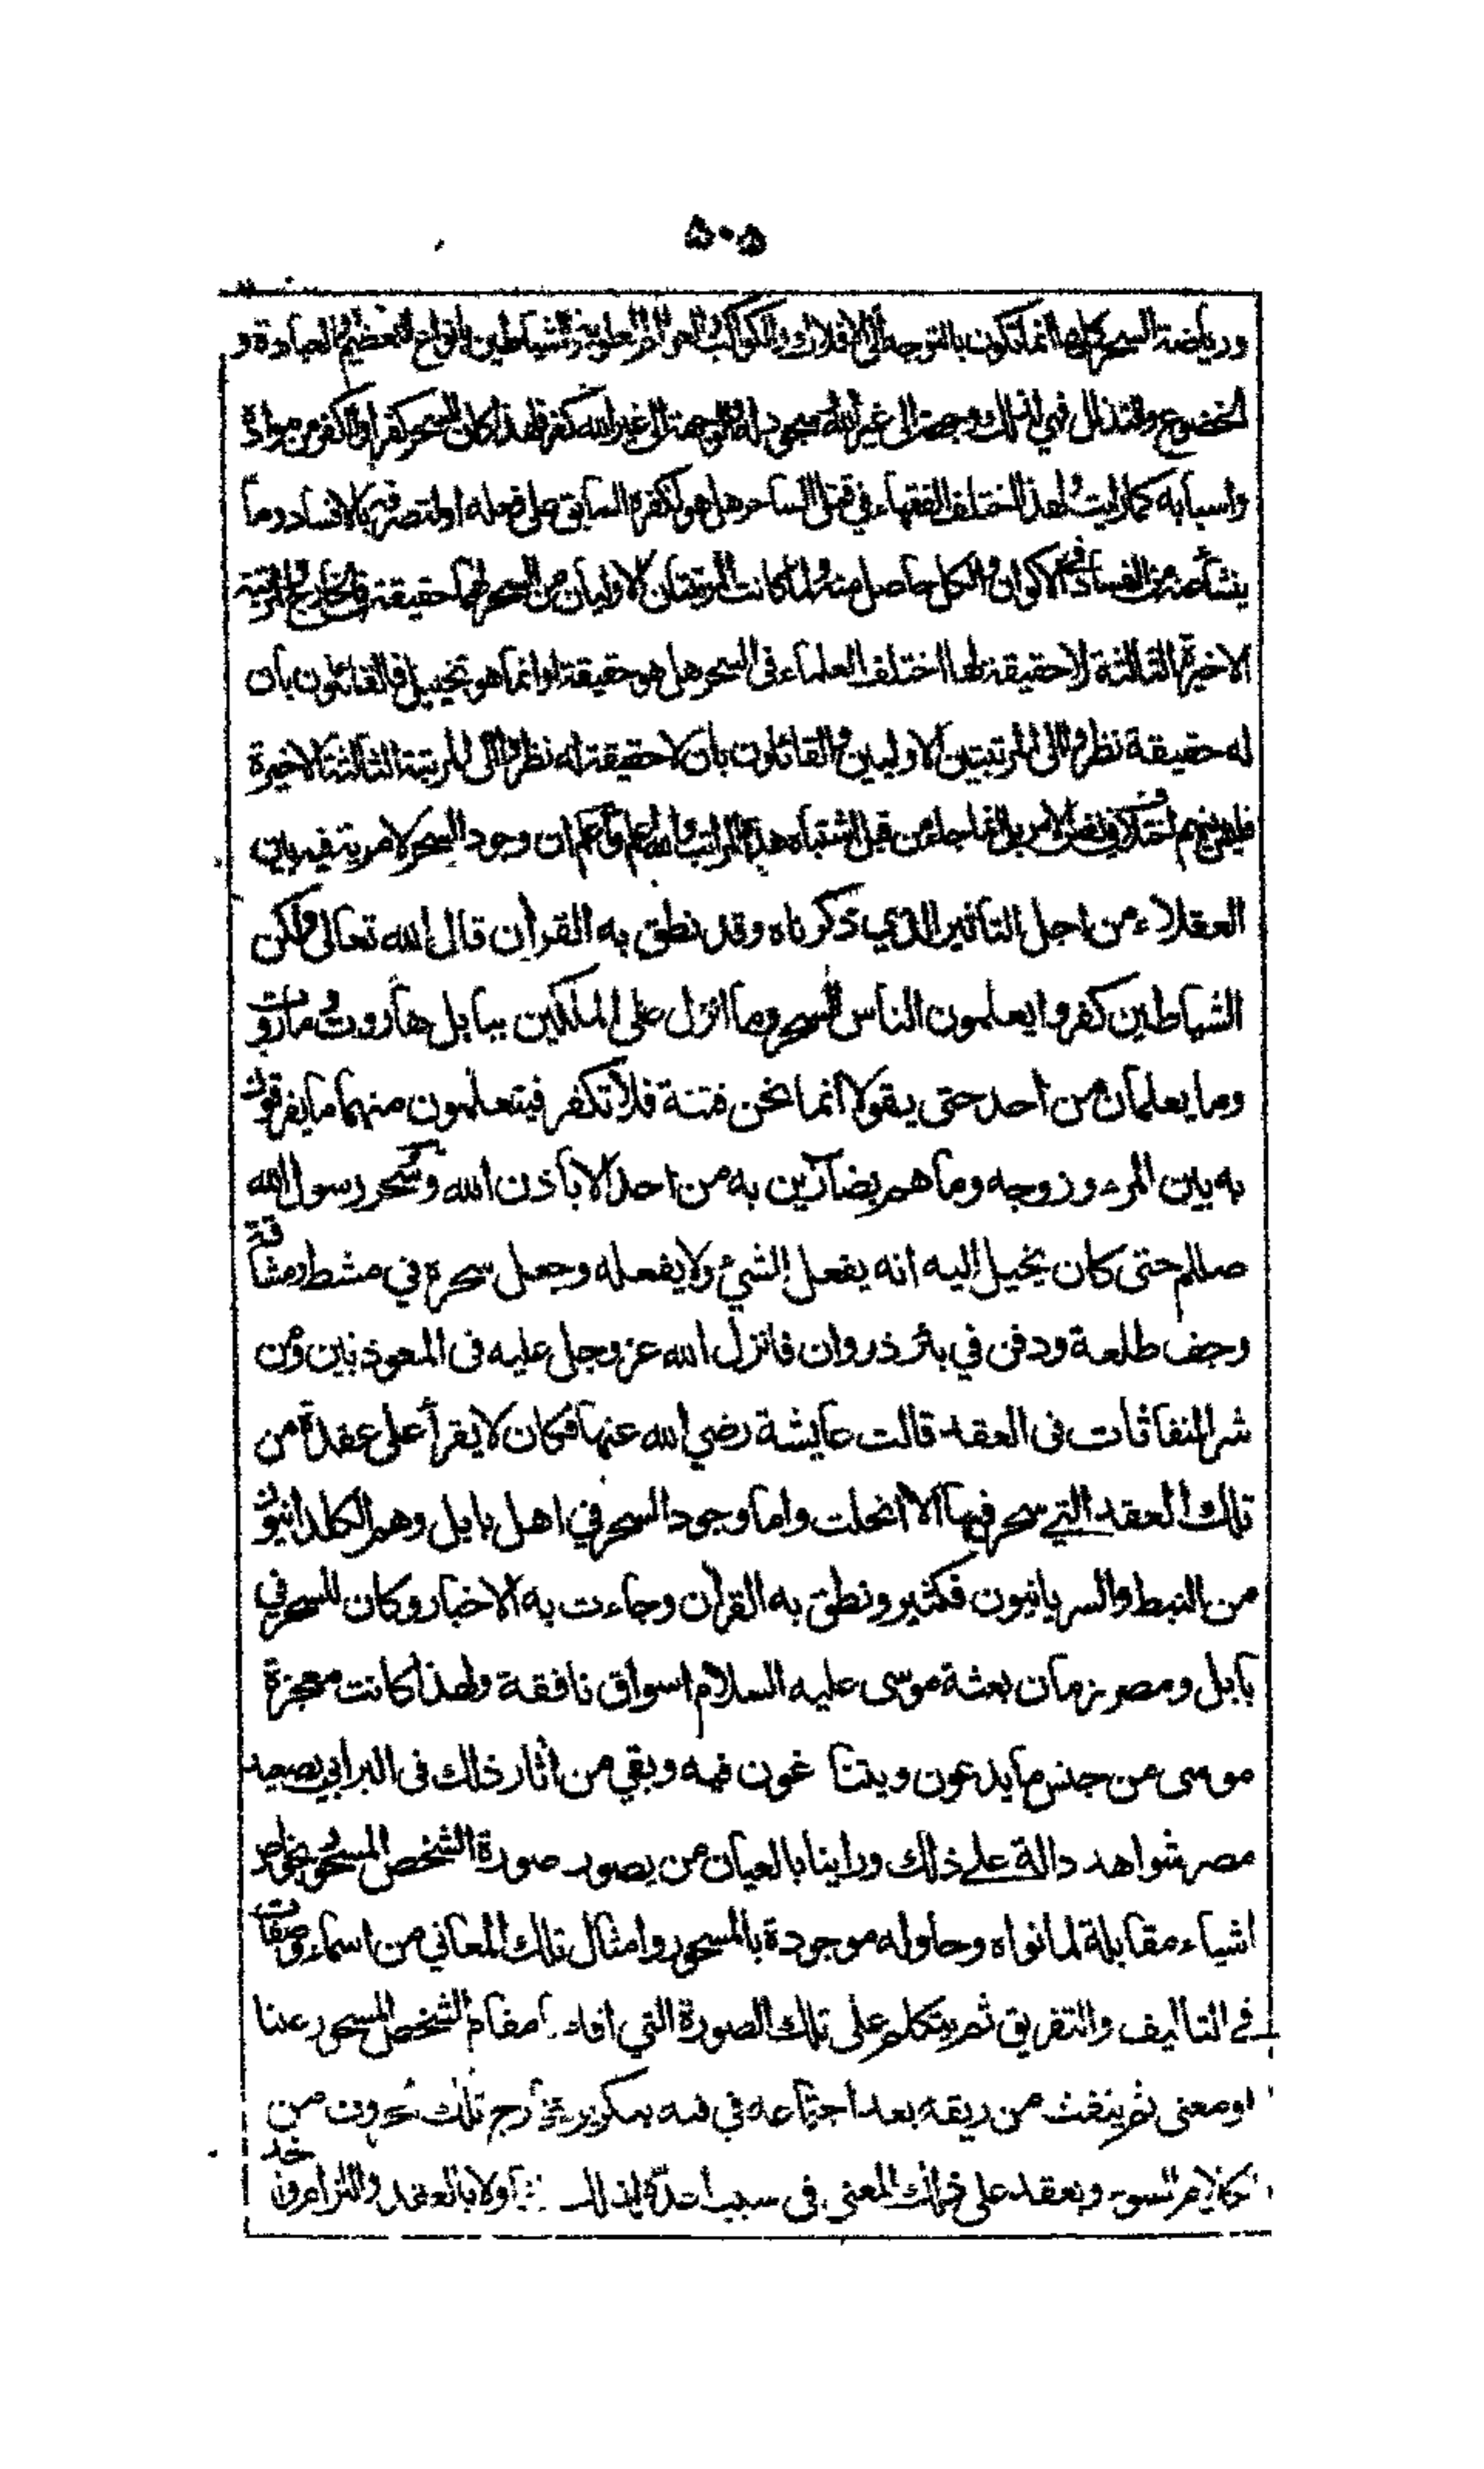 ٥٠٥
ورياضة السحر كلها انما تكون بالتوجه الى الافلاك والكواكب والعوالم العلوية والشياطين بانواع التعظيم والعبادة و
الخضوع والتذلل فهي لذلك وجهة الى غير الله وسجود له والوجهة الى غير الله كفر فلهذا كان السحر كفرا والكفر من مواده
واسبابه كما رايت ولهذا اختلف الفقهاء في قتل الساحر هل هو لكفره السابق على فعله او لتصرفه بالافساد وما
ينشأ عنه من الفساد في الاكوان والكل حاصل منه ولما كانت المرتبتان الاوليان من السحر لهما حقيقة في الخارج والمرتبة
الاخيرة الثالثة لا حقيقة لها اختلف العلماء فى السحر هل هو حقيقة او انما هو تخييل فالقائلون بان
له حقيقة نظروا الى المرتبتين الاوليين والقائلون بان لا حقيقة له نظروا الى المرتبة الثالثة الاخيرة
فليس بينهم اختلاف في نفس الامر بل انما جاء من قبل اشتباه هذه المراتب والله اعلم واعلم ان وجود السحر لا مرية فيه بين
العقلاء من اجل التاثير الذي ذكرناه وقد نطق به القرآن قال الله تعالى ولكن
الشياطين كفروا يعلمون الناس السحر وما انزل على الملكين ببابل هاروت وماروت
وما يعلمان من احد حتى يقولا انما نحن فتنة فلا تكفر فيتعلمون منهما ما يفرقون
به بين المرء وزوجه وما هم بضآرين به من احد الا باذن الله وسُحر رسول الله
صللم حتى كان يخيل اليه انه يفعل الشئ ولا يفعله وجعل سحره في مشط ومشاقة
وجف طلعة ودفن في بئر ذروان فانزل الله عز وجل عليه فى المعوذتين ومن
شر النفاثات فى العقد قالت عايشة رضي الله عنها فكان لا يقرأ على عقدة من
تلك العقد التي سحر فيها الا انحلت واما وجود السحر في اهل بابل وهم الكلدانيون
من النبط والسريانيون فكثير ونطق به القرآن وجاءت به الاخبار وكان للسحر في
بابل ومصر زمان بعثة موسى عليه السلام اسواق نافقة ولهذا كانت معجزة
موسى من جنس ما يدعون ويتنا غون فيه وبقي من اثار ذلك فى البرابي بصعيد
مصر شواهد دالة على ذلك وراينا بالعيان من يصور صورة الشخص المسحور بخواص
اشياء مقابلة لما نواه وحاوله موجودة بالمسحور وامثال تلك المعاني من اسماء وصفات
في التاليف والتفريق ثم يتكلم على تلك الصورة التي اقامها مقام الشخص المسحور عينا
او معنى ثم ينفث من ريقه بعد اجتماعه في فيه بتكرير مخارج تلك الحروف من
الكلام السوء ويعقد على ذلك المعنى فى سبب اعده لذلك تفاولا بالعقد واللزام واخذ